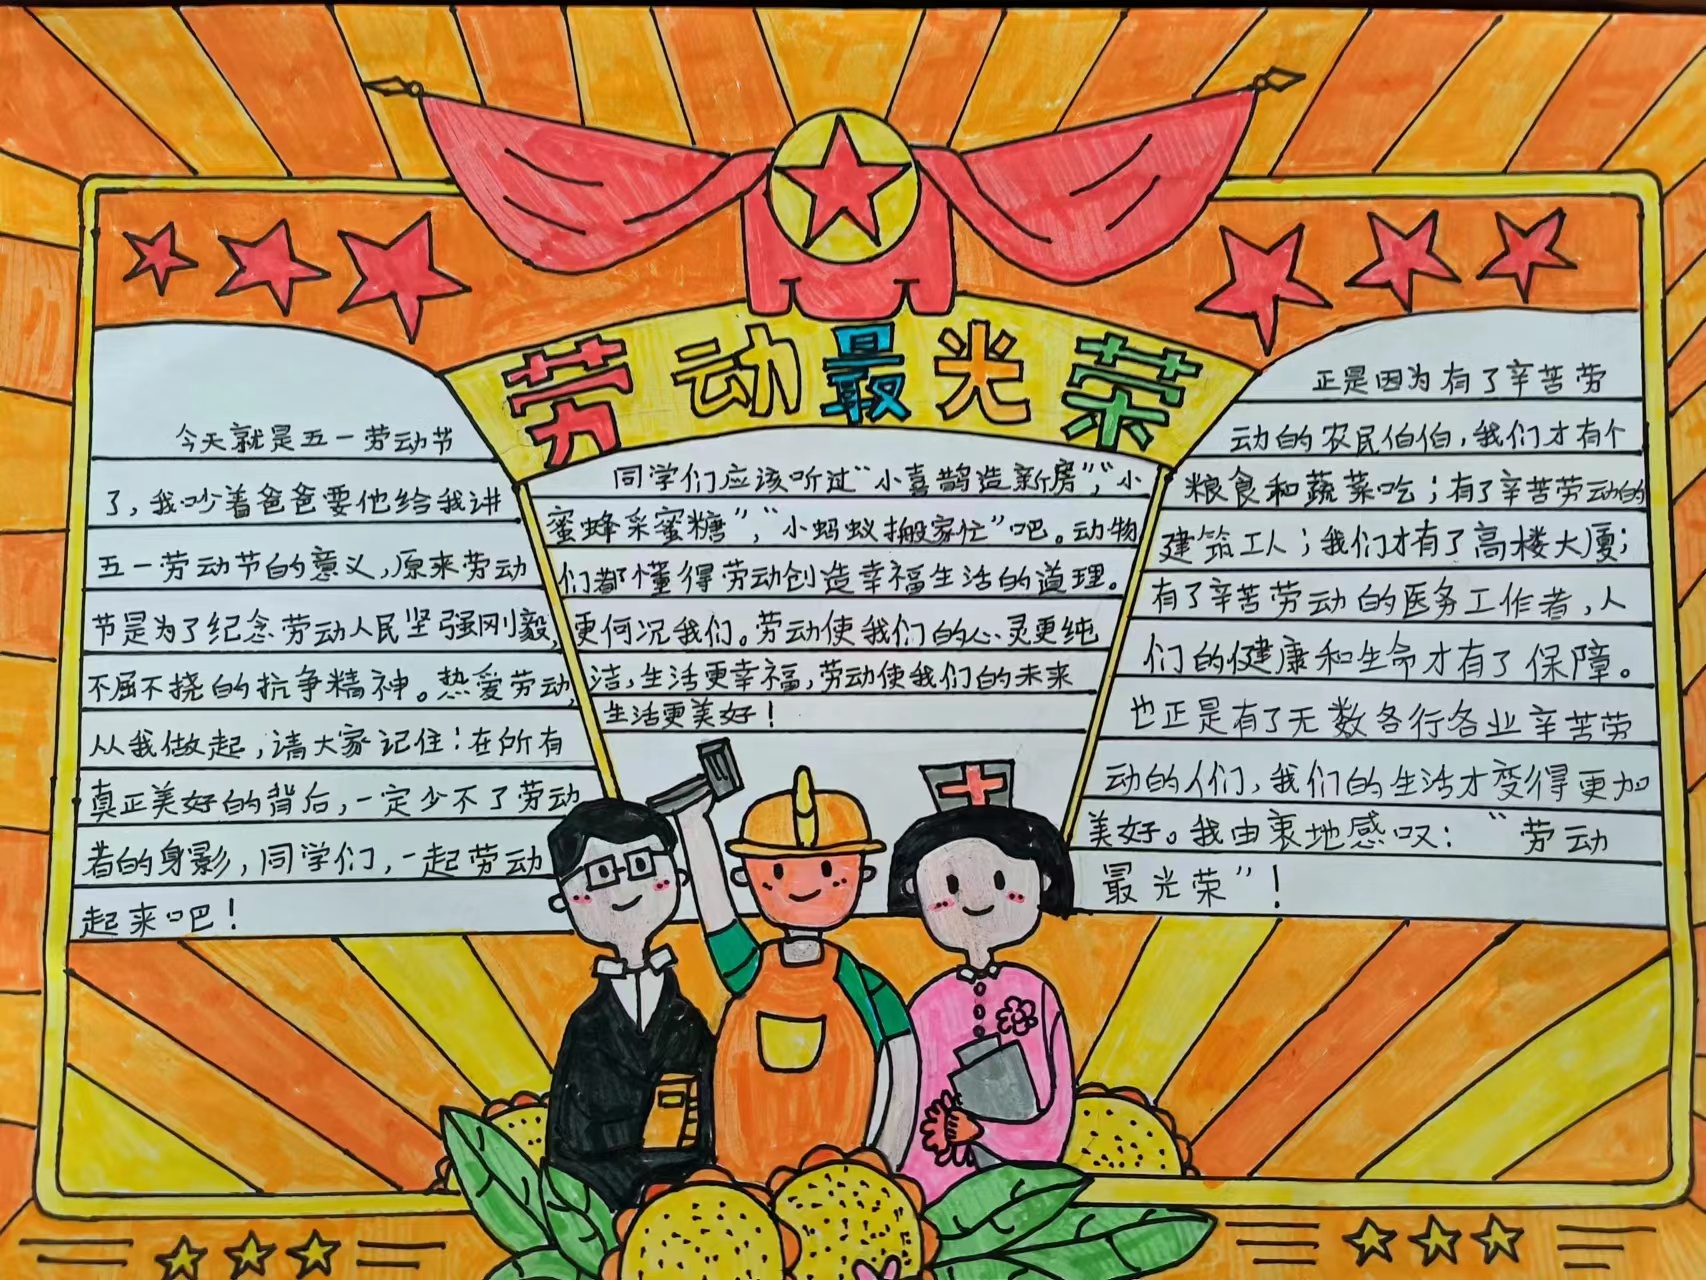 劳动最光荣
今天就是五一劳动节
了，我吵着爸爸要他给我讲
五一劳动节的意义，原来劳动
节是为了纪念劳动人民坚强刚毅，
不屈不挠的抗争精神。热爱劳动，
从我做起，请大家记住：在所有
真正美好的背后，一定少不了劳动
者的身影，同学们，一起劳动
起来吧！
同学们应该听过“小喜鹊造新房”，“小
蜜蜂采蜜糖”，“小蚂蚁搬家忙”吧。动物
们都懂得劳动创造幸福生活的道理。
更何况我们。劳动使我们的心灵更纯
洁，生活更幸福，劳动使我们的未来
生活更美好！
正是因为有了辛苦劳
动的农民伯伯，我们才有个
粮食和蔬菜吃；有了辛苦劳动的
建筑工人；我们才有了高楼大厦；
有了辛苦劳动的医务工作者，人
们的健康和生命才有了保障。
也正是有了无数各行各业辛苦劳
动的人们，我们的生活才变得更加
美好。我由衷地感叹：“劳动
最光荣”！